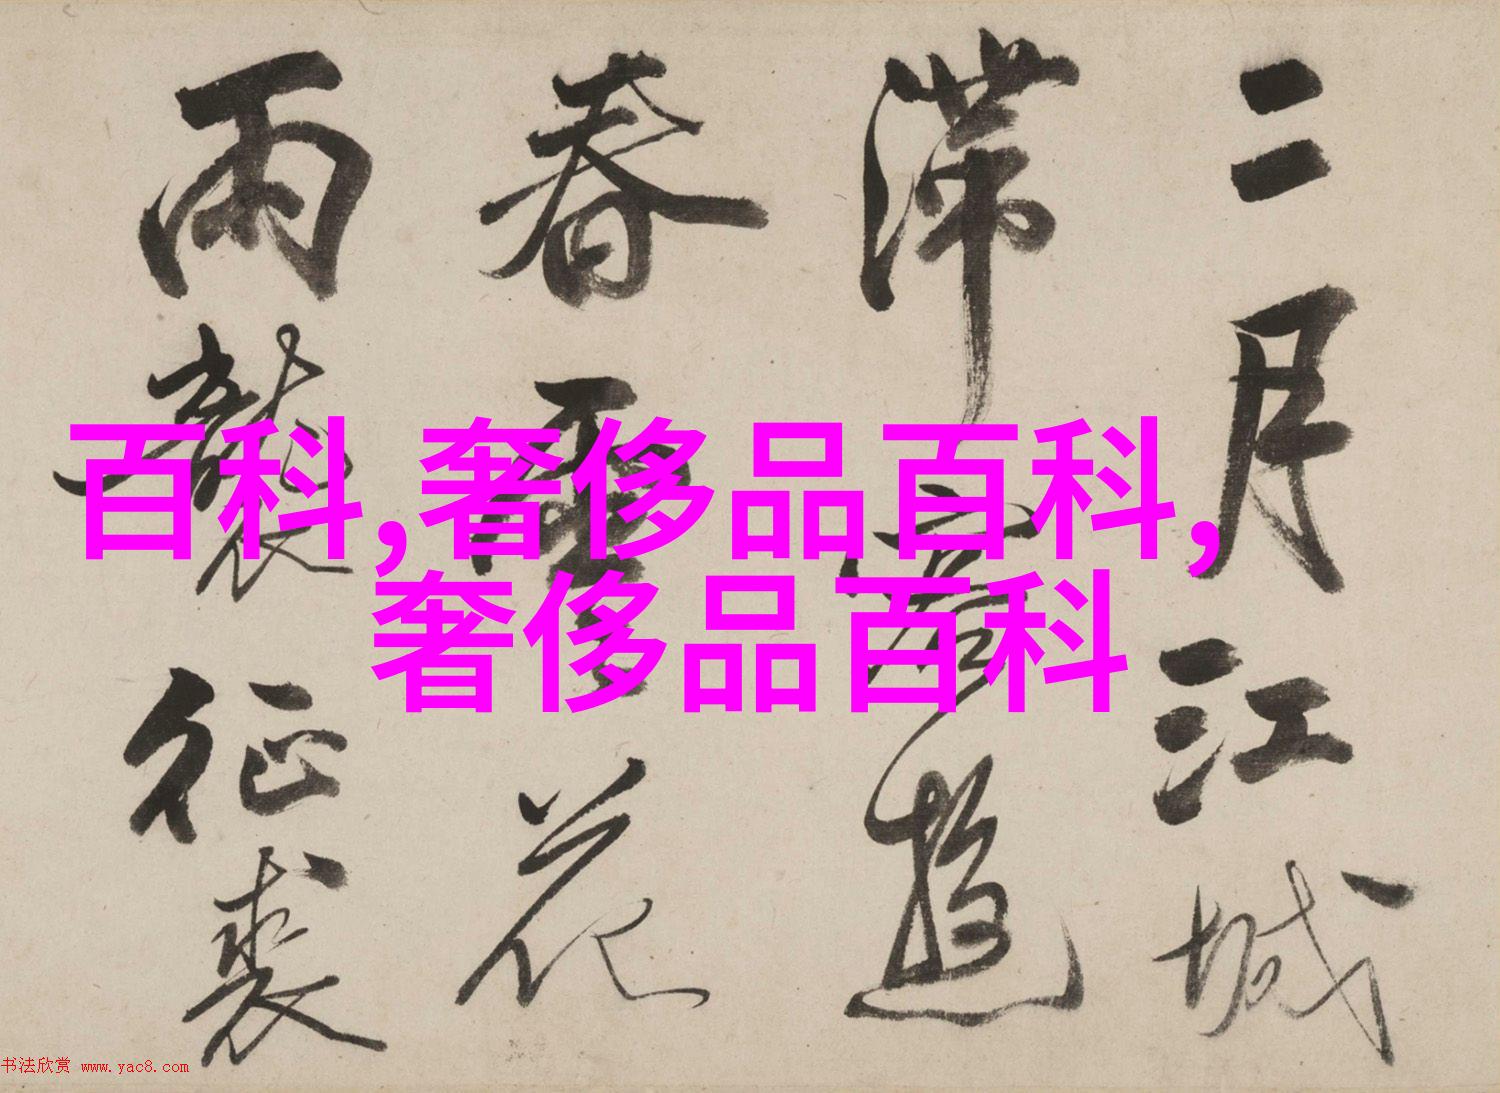 二月江城
滞客遊
春花
雨襲征裘
百科,奢侈品百科,
奢侈品百科
书法欣赏 www.yac8.com